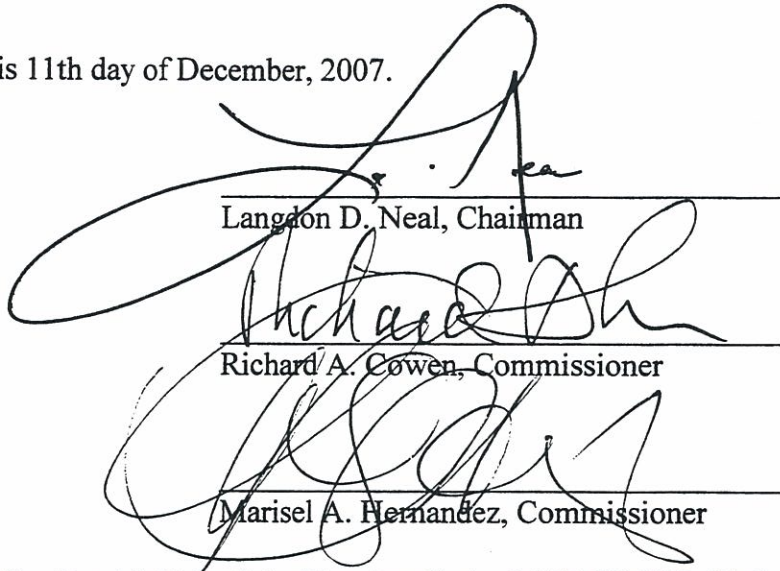 is 11th day of December, 2007.
Langdon D. Neal, Chairman
Richard A. Cowen, Commissioner
Marisel A. Hernandez, Commissioner